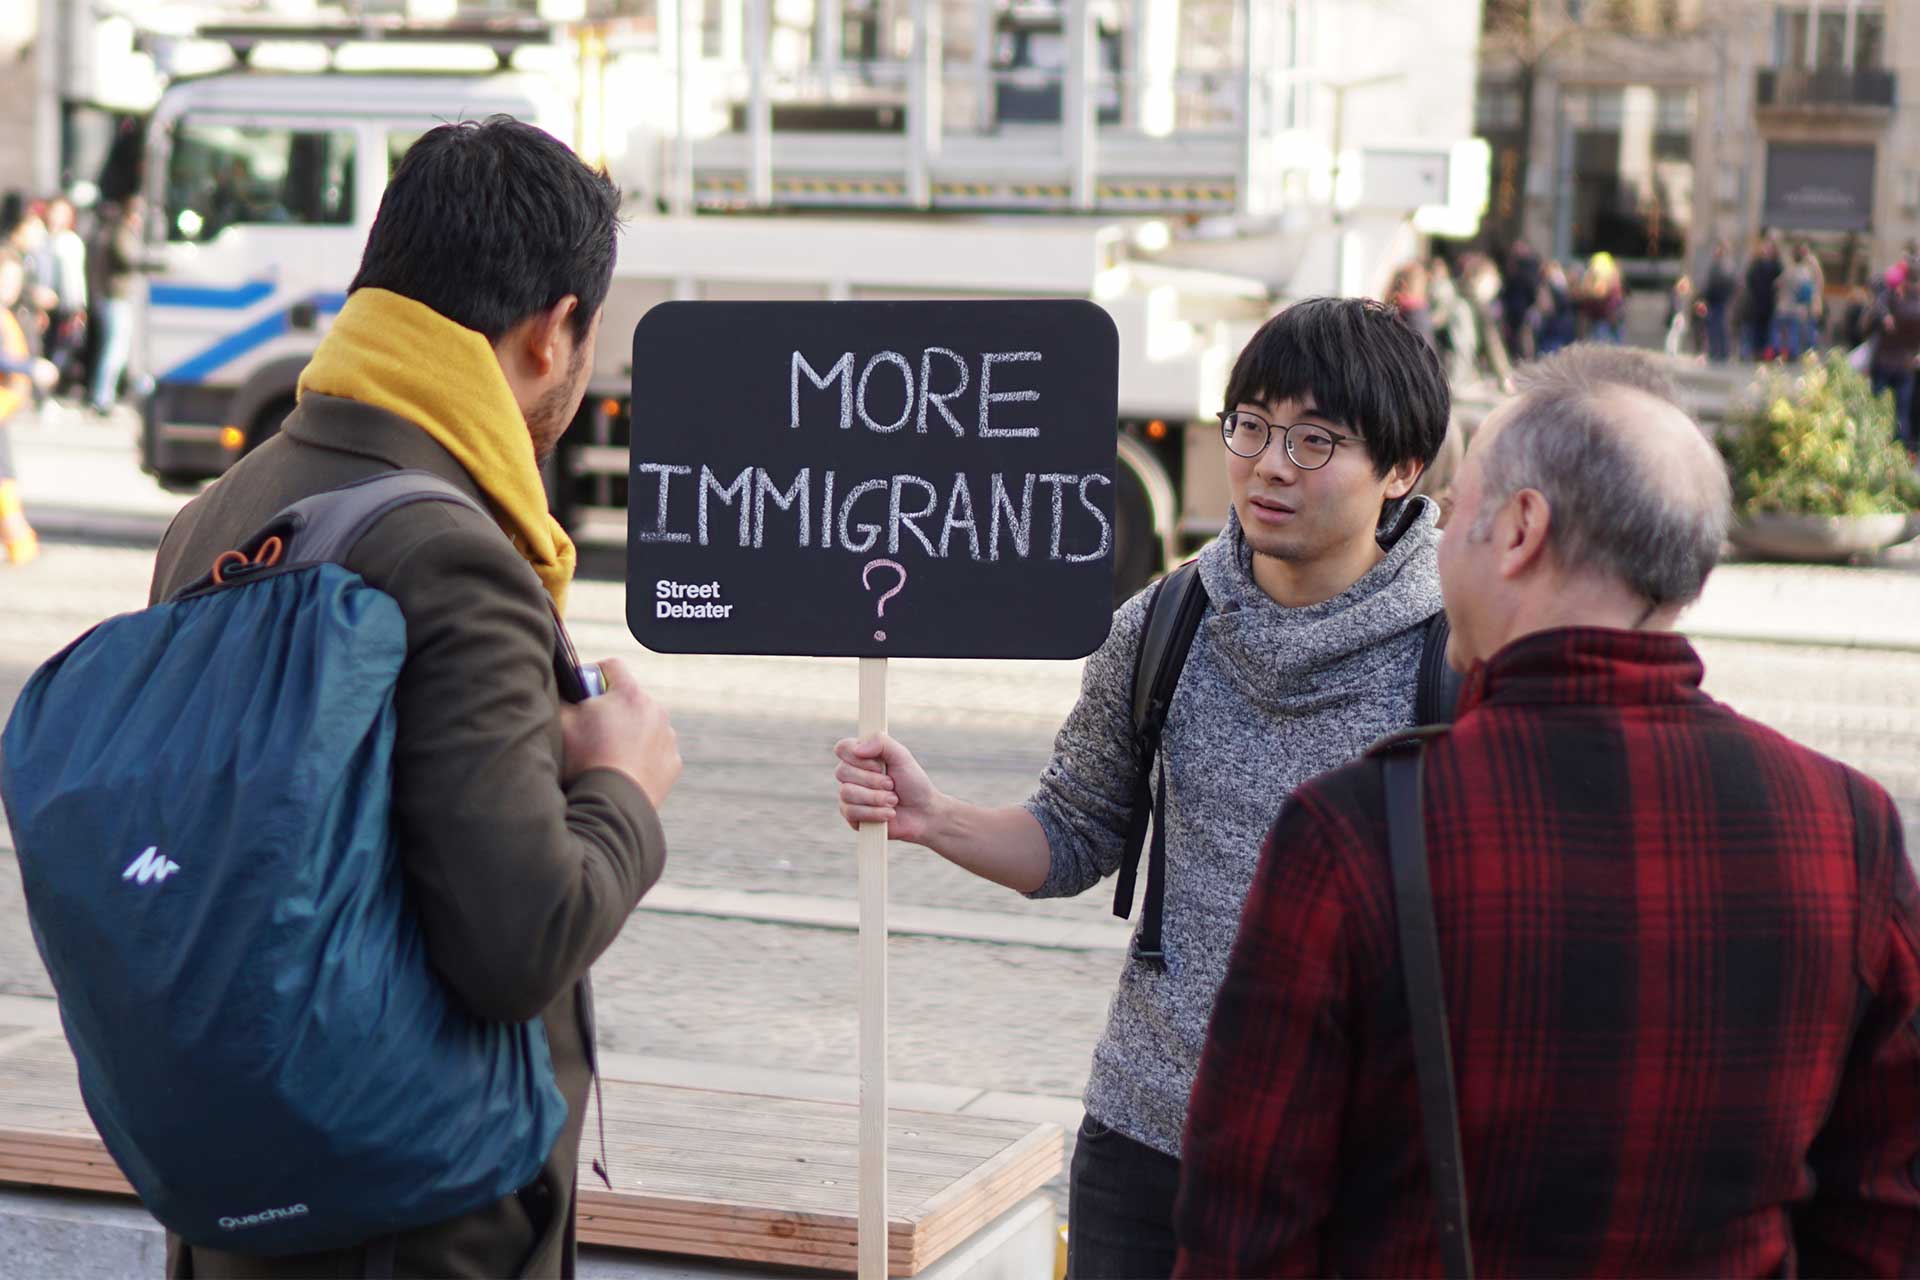 MORE
IMMIGRANTS
?
Street
Debater
Quechua